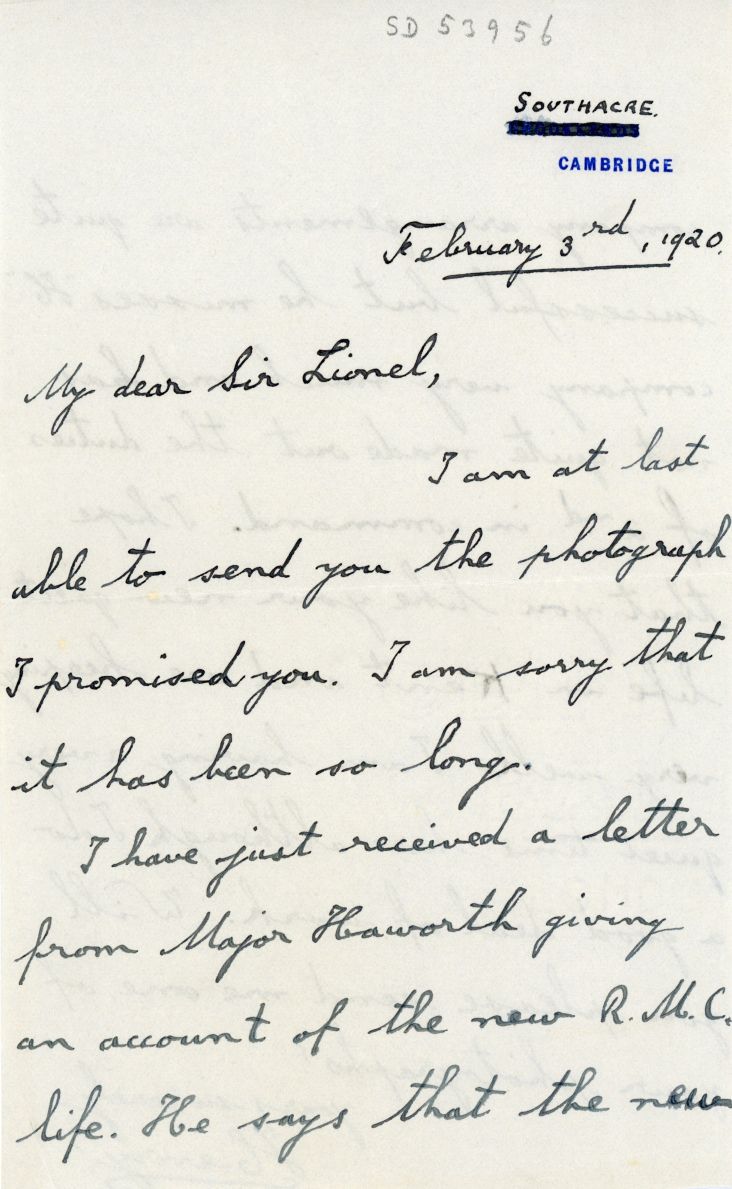 SD 53956
SOUTHACRE.
CAMBRIDGE
February 3rd, 1920.
My dear Sir Lionel,
I am at last
able to send you the photograph
I promised you. I am sorry that
it has been so long.
I have just received a letter
from Major Haworth giving
an account of the new R.M.C.
life. He says that the new